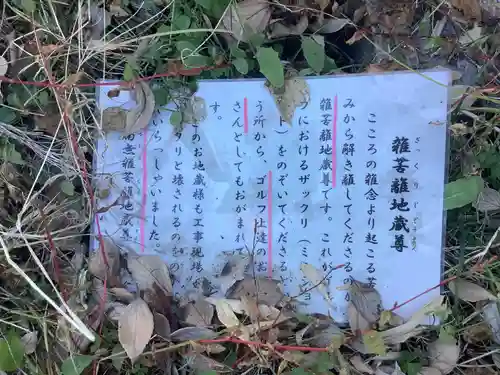 雑苦離地蔵尊
こころの雑念より起こる苦
みから解き離してくださるの
雑苦離地蔵尊です。これが
フにおけるザックリ（ミ ショ
）をのぞいてくださる
う所から、ゴルフ上達の
さんとしてもおがまれ
す。
このお地蔵様も工事現場
たりと壊されるのをの
いらっしゃいました。
南無雑苦離地蔵尊